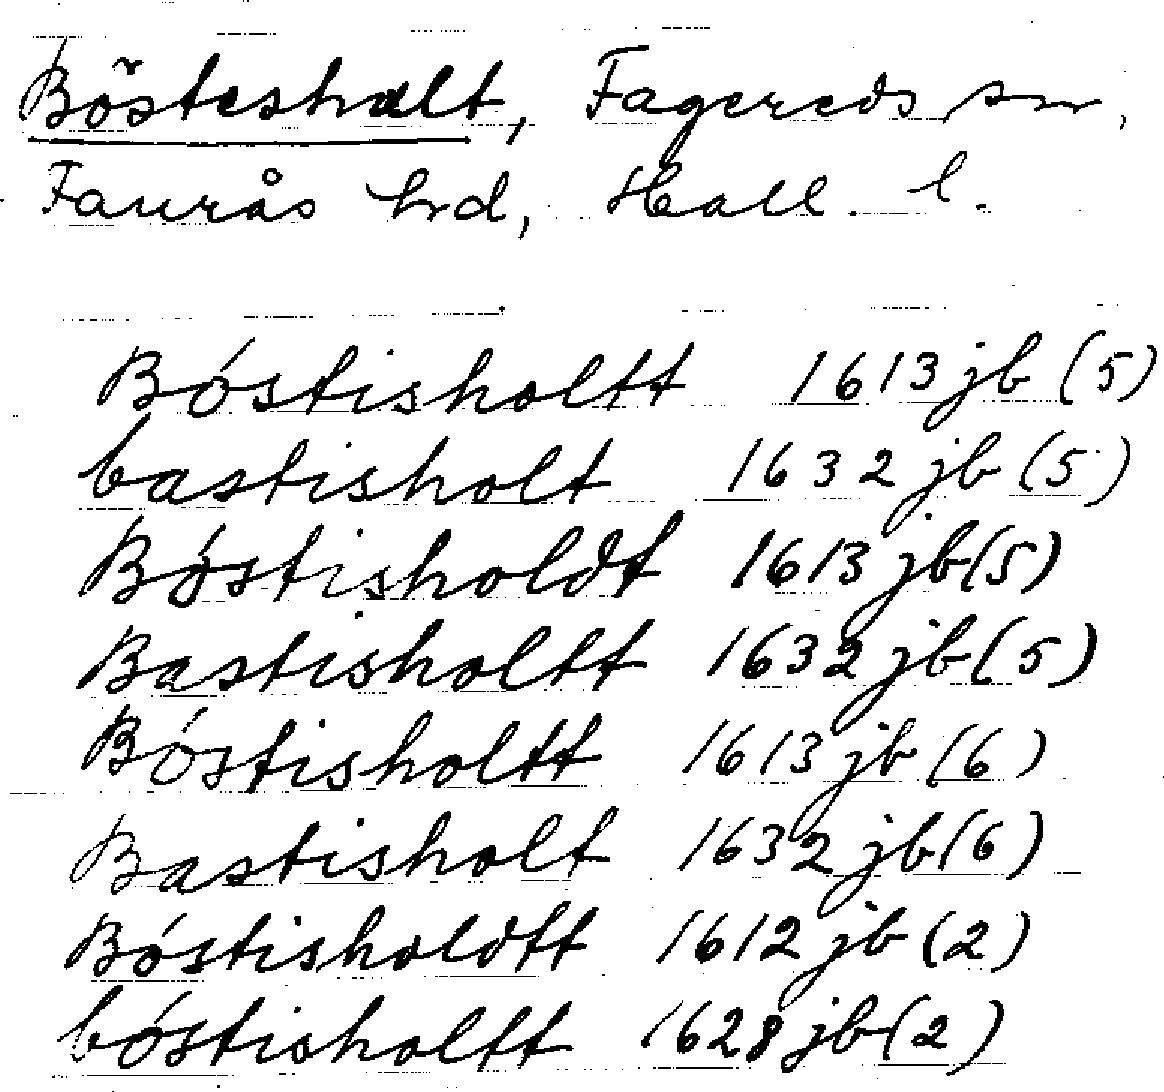 Bösteshalt, Fagereds sn,
Faurås hrd, Hall. l.
Bóstisholtt 1613 jb (5)
bastisholt 1632 jb (5)
Bóstisholdt 1613 jb (5)
Bastisholtt 1632 jb (5)
Bóstisholtt 1613 jb (6)
Bastisholt 1632 jb (6)
Bóstisholdtt 1612 jb (2)
bóstisholtt 1628 jb (2)